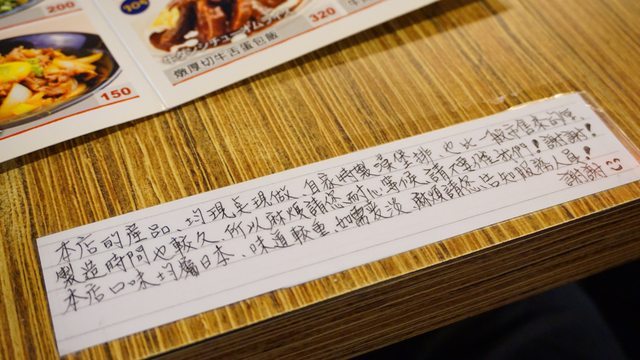 200
104
タンシチューオムライス
320
燉厚切牛舌蛋包飯
150
本店的產品、均現点現做、自家特製漢堡排，也比一般市售來的厚，
製造時間也較久、所以麻煩請您耐心等候，請不要催我們！謝謝！
本店口味均屬日本、味道較重、如需要淡、麻煩請您告知服務人員！
謝謝